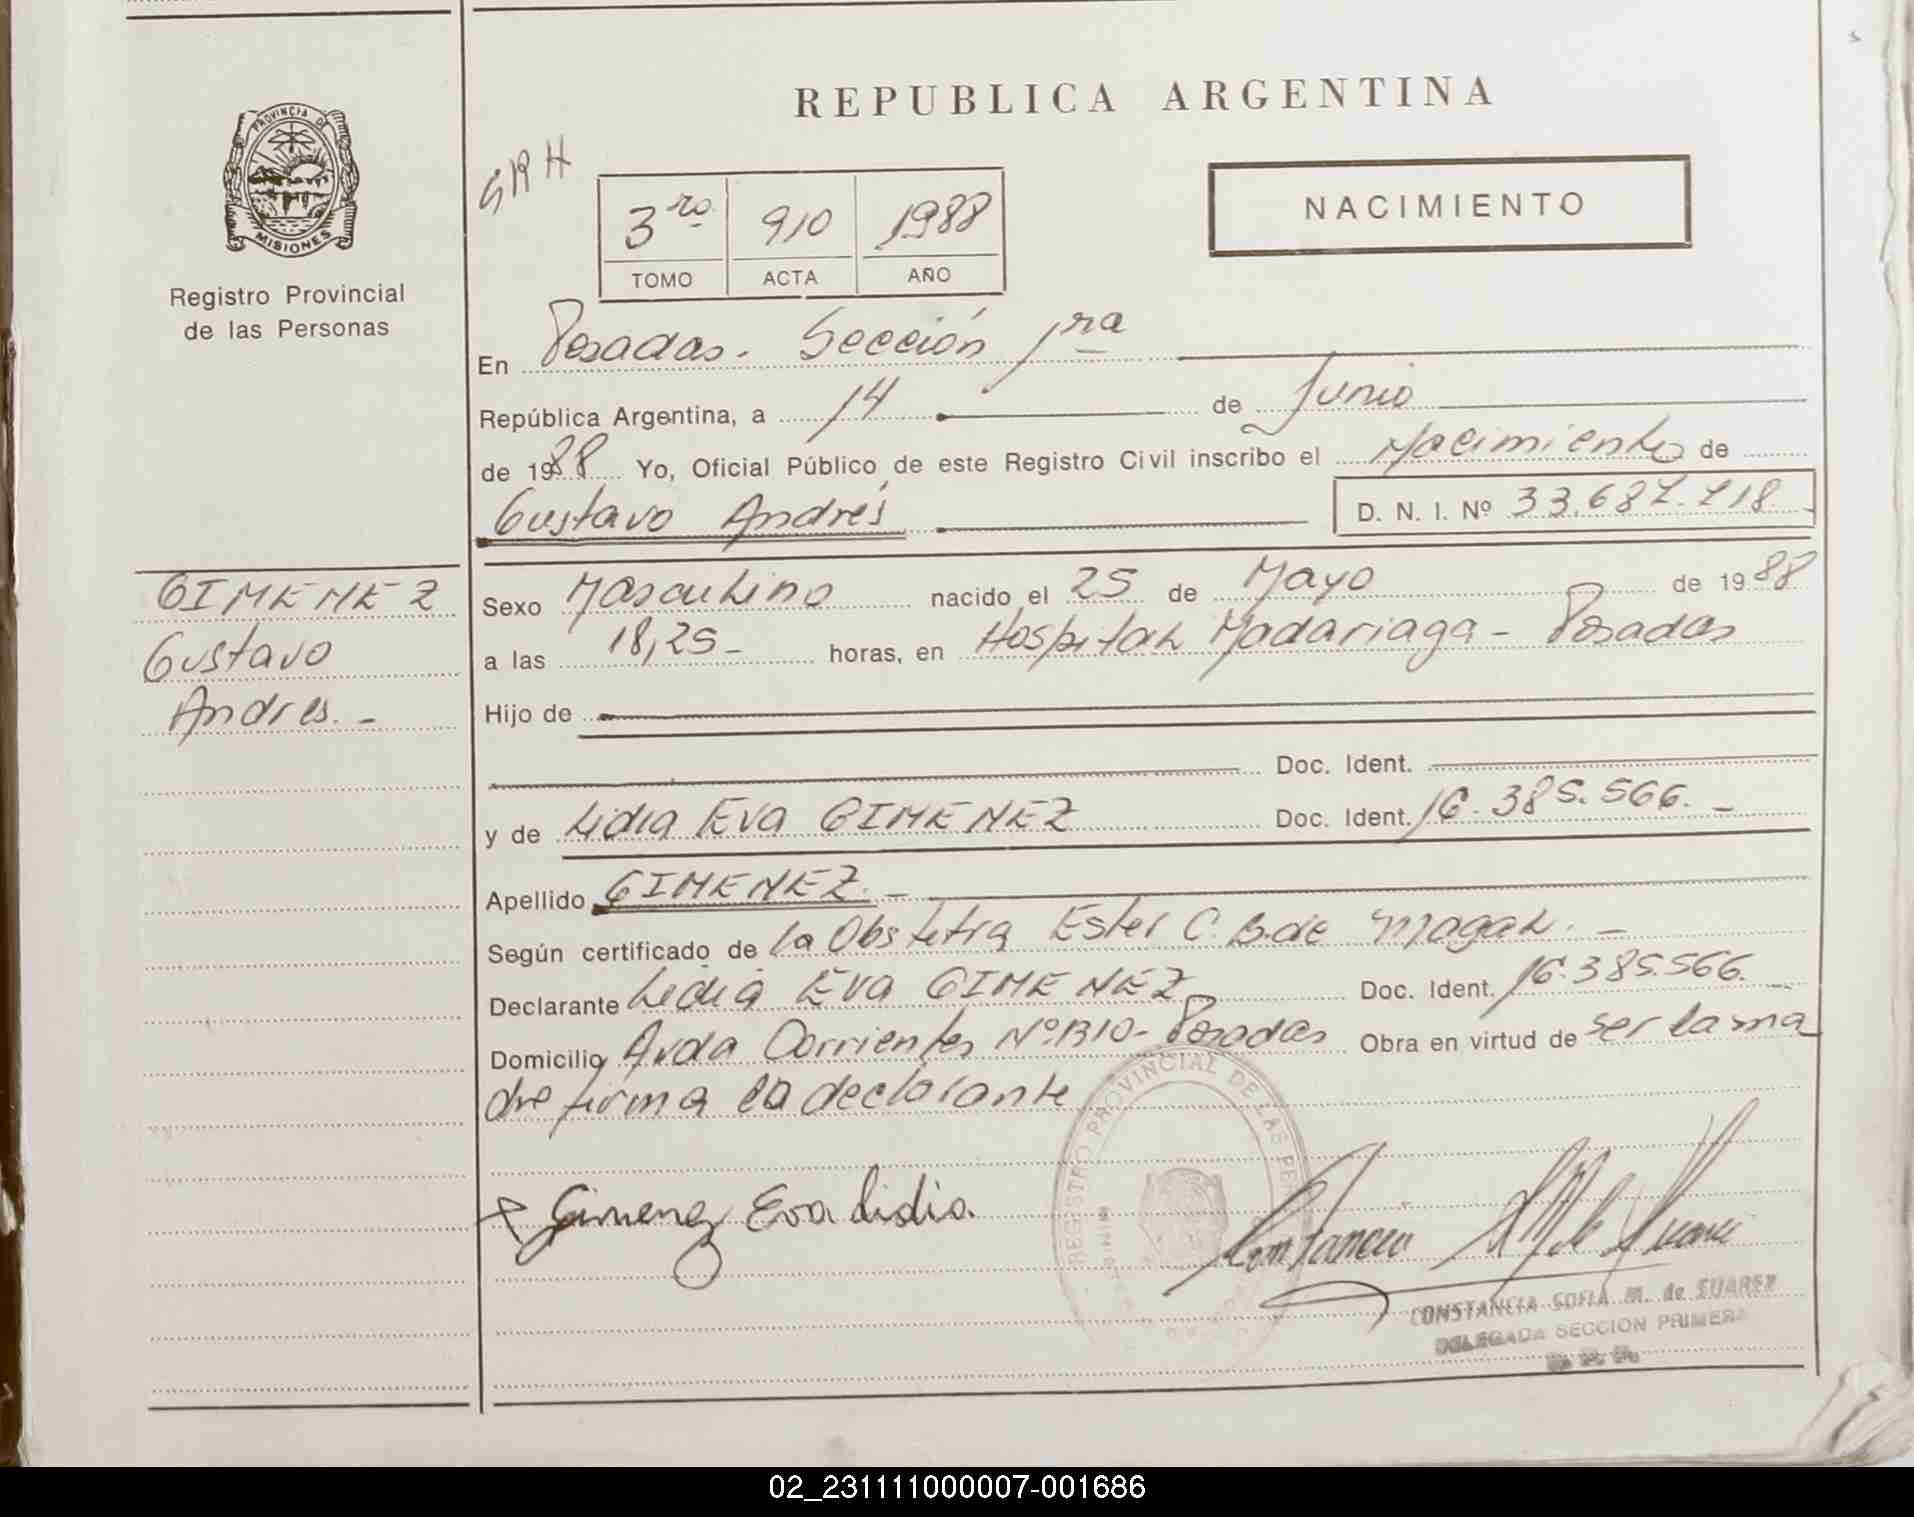 REPUBLICA ARGENTINA
PROVINCIA DE
MISIONES
Registro Provincial
de las Personas
SRH
3ro 910 1988
TOMO ACTA AÑO
NACIMIENTO
En Posadas. Sección 1ra
República Argentina, a 14 de Junio
de 1988 Yo, Oficial Público de este Registro Civil inscribo el Nacimiento de
Gustavo Andrés D. N. I. Nº 33.687.718
GIMENEZ
Gustavo
Andres. -
Sexo Masculino nacido el 25 de Mayo de 1988
a las 18,25 - horas, en Hospital Madariaga - Posadas
Hijo de
Doc. Ident.
y de Lidia Eva GIMENEZ Doc. Ident. 16.385.566. -
Apellido GIMENEZ. -
Según certificado de la Obstetra Ester C. B. de Magal. -
Declarante Lidia Eva GIMENEZ Doc. Ident. 16.385.566. -
Domicilio Avda Corrientes Nº 1310 - Posadas Obra en virtud de ser la ma
dre firma la declarante
Gimenez Eva Lidia.
REGISTRO PROVINCIAL DE LAS PE
Constancia M de Suarez
CONSTANCIA SOFIA M. de SUAREZ
DELEGADA SECCION PRIMERA
02_231111000007-001686